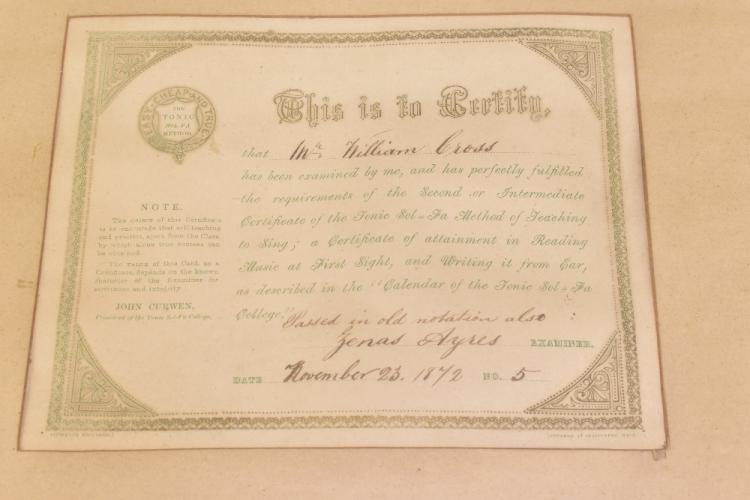 EASY, CHEAP AND TRUE
THE
TONIC
SOL-FA
METHOD
This is to Certify,
that Mr William Cross
has been examined by me, and has perfectly fulfilled
the requirements of the Second or Intermediate
Certificate of the Tonic Sol-Fa Method of Teaching
to Sing; a Certificate of attainment in Reading
Music at First Sight, and Writing it from Ear,
as described in the "Calendar of the Tonic Sol-Fa
College."
Passed in old notation also :
Zenas Ayres EXAMINER.
DATE November 23. 1872 NO. 5
NOTE.
The object of this Certificate
is to encourage that self-teaching
and practice, apart from the Class
by which alone true success can
be obtained.
The value of this Card, as a
Certificate, depends on the known
character of the Examiner for
strictness and integrity
JOHN CURWEN,
President of the Tonic Sol-Fa College.